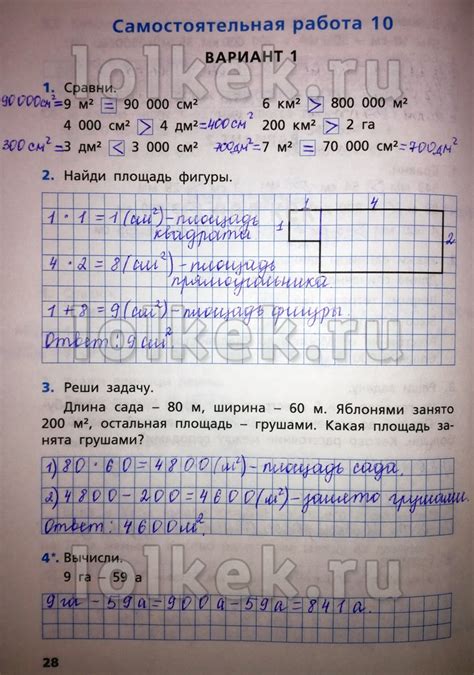 Самостоятельная работа 10
ВАРИАНТ 1
1. Сравни.
90 000см²= 9 м² = 90 000 см² 6 км² > 800 000 м²
4 000 см² > 4 дм² =400см² 200 км² > 2 га
300 см² = 3 дм² < 3 000 см² 700дм²= 7 м² = 70 000 см² =700дм²
2. Найди площадь фигуры.
1 4
1 · 1 = 1 (см²) – площадь 1
квадрата 2
4 · 2 = 8 (см²) – площадь
прямоугольника
1 + 8 = 9 (см²) – площадь фигуры.
Ответ: 9 см².
3. Реши задачу.
Длина сада – 80 м, ширина – 60 м. Яблонями занято
200 м², остальная площадь – грушами. Какая площадь за-
нята грушами?
1) 80 · 60 = 4800 (м²) – площадь сада.
2) 4800 – 200 = 4600 (м²) – занято грушами.
Ответ: 4600 м².
4*. Вычисли.
9 га – 59 а
9 га – 59 а = 900а – 59а = 841а.
28
lolkek.ru
lolkek.ru
lolkek.ru
lolkek.ru